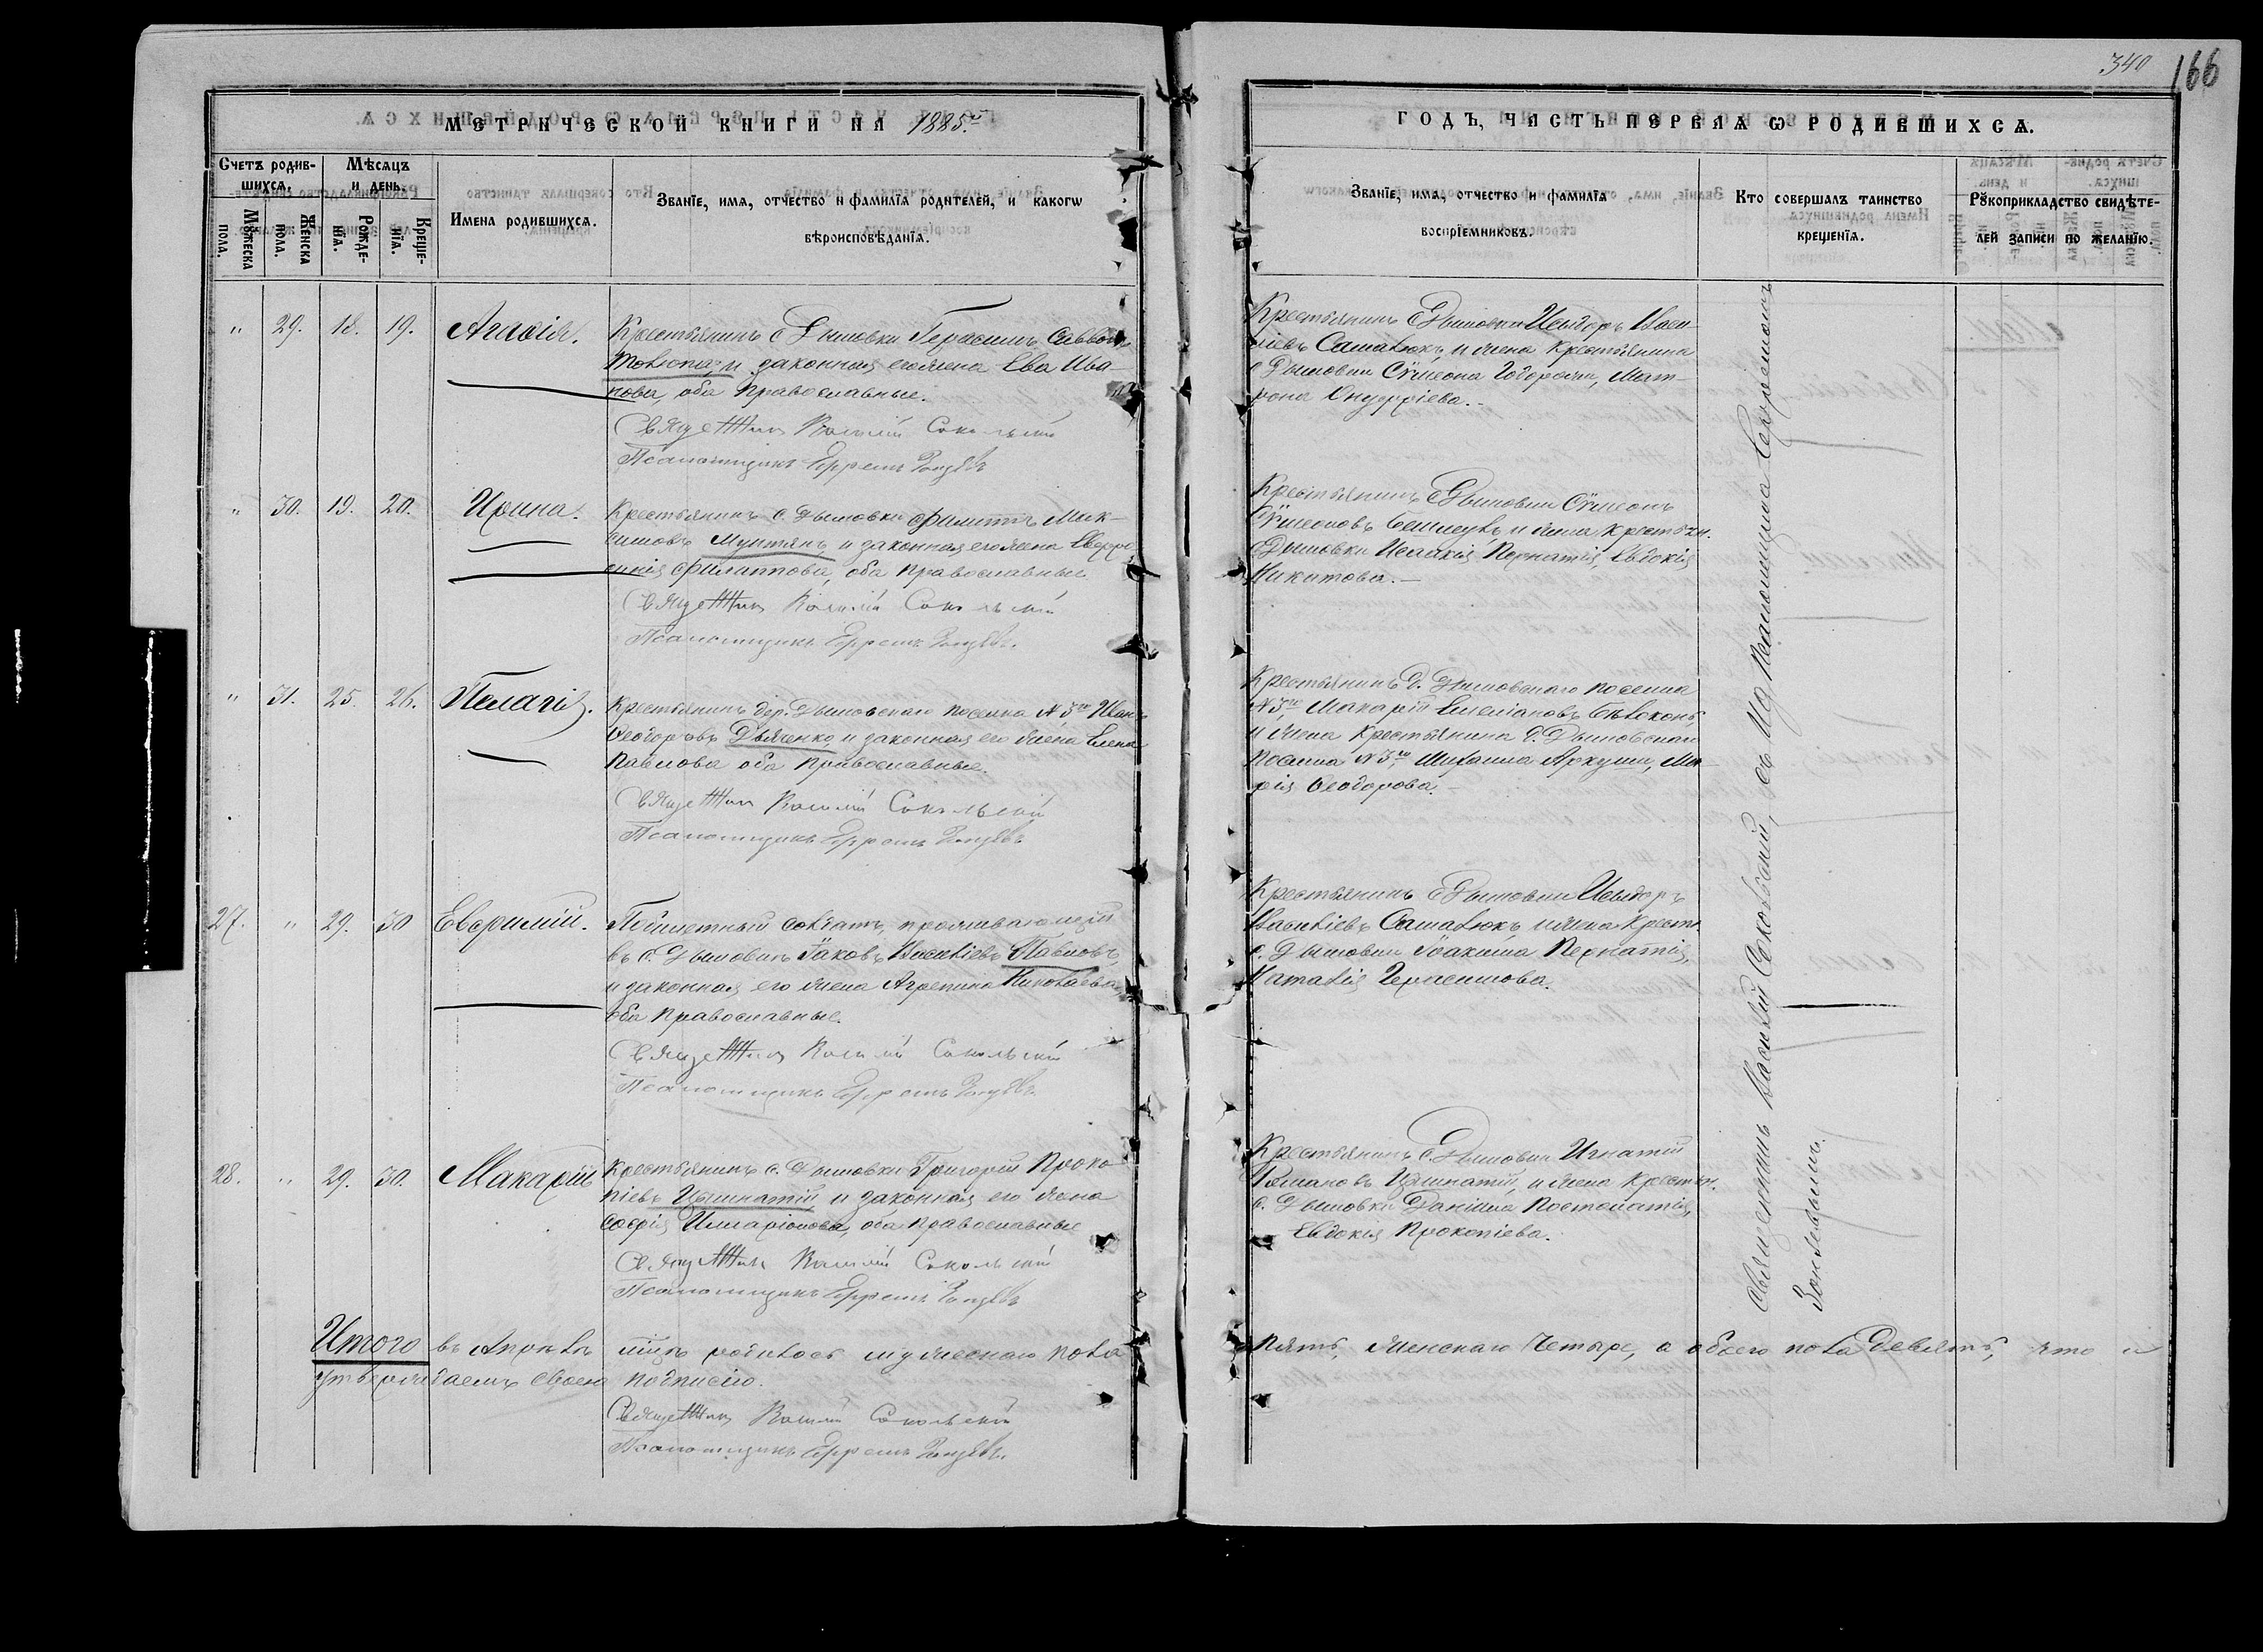 340
166
МЕТРИЧЕСКОЙ КНИГИ НА 1885й
ГОДЪ, ЧАСТЬ ПЕРВАЯ Ѡ РОДИВШИХСѦ.
Счетъ родив-
шихсѧ.
Мѣсѧцъ
и день.
Мꙋжеска
пола.
Женска
пола.
Рожде-
нїѧ.
Креще-
нїѧ.
Имена родившихсѧ.
Званїе, имѧ, отчество и фамилїѧ родителей, и какогѡ
вѣроисповѣданїѧ.
Званїе, имѧ, отчество и фамилїѧ
воспрїемниковъ.
Кто совершалъ таинство
крещенїѧ.
Рꙋкоприкладство свидѣте-
лей записи по желанїю.
" 29. 18. 19. Агафія.
Крестьянинъ с Дымовки Герасимъ Савво
и законная его жена Ева Ива-
нова, оба православные.
Священникъ Василій Сокольскій
Псаломщикъ Ефремъ
Крестьянинъ с Дымовки Исидоръ Васи-
ліевъ Саматюкъ, и жена крестьянина
с Дымовки Сѵмеона Тодорели, Мат-
рона Онуфріева.-
" 30. 19. 20. Ирина.
Крестьянинъ с. Дымовки Филиппъ Мак-
симовъ Мунтянъ, и законная его жена Евфро
синія Филиппова, оба православные
Священникъ Василій Сокольскій
Псаломщикъ Ефремъ
Крестьянинъ с Дымовки Сѵмеонъ
Сѵмеоновъ и жена крестьян.
с Дымовки Исаакія Пернатія, Евдокія
Никитова.-
" 31. 25. 26. Пелагія.
Крестьянинъ дер. Дымовскаго поселка № 3го Иванъ
Ѳеодоровъ Дьяченко, и законная его жена Елена
Павлова оба православные.
Священникъ Василій Сокольскій
Псаломщикъ Ефремъ
Крестьянинъ д. Дымовскаго поселка
№ 3го Макарій Емеліановъ Бѣлоконь,
и жена крестьянина д. Дымовскаго
поселка № 3го, Михаила Аркуши, Ма-
рія Ѳеодорова.-
27. " 29. 30 Евфимій.
Побилетный солдатъ, проживающій
въ с. Дымовкѣ Іаковъ Василіевъ Павловъ,
и законная его жена Агрепина Николаева
оба православные.
Священникъ Василій Сокольскій
Псаломщикъ Ефремъ
Крестьянинъ с Дымовки Исидоръ
Василіевъ Саматюкъ, и жена крестья.
с. Дымовки Іоакима Пернатія,
Наталія Герасимова.
28. " 29. 30. Макарій
Крестьянинъ с. Дымовки Григорій Проко-
піевъ Цымпатій и законная его жена
Софія Илларіонова, оба православные
Священникъ Василій Сокольскій
Псаломщикъ Ефремъ
Крестьянинъ с. Дымовки Игнатій
Романовъ Цымпатій, и жена крестьян.
с. Дымовки Даніила Постолатія,
Евдокія Прокопіева.
Священникъ Василій Сокольскій, съ Псаломщикомъ Ефремомъ
Итого въ Апрѣлѣ мцѣ родилось мужескаго пола пять, женскаго четыре, а обоего пола девять, что и
утверждаемъ своею подписью.
Священникъ Василій Сокольскій
Псаломщикъ Ефремъ